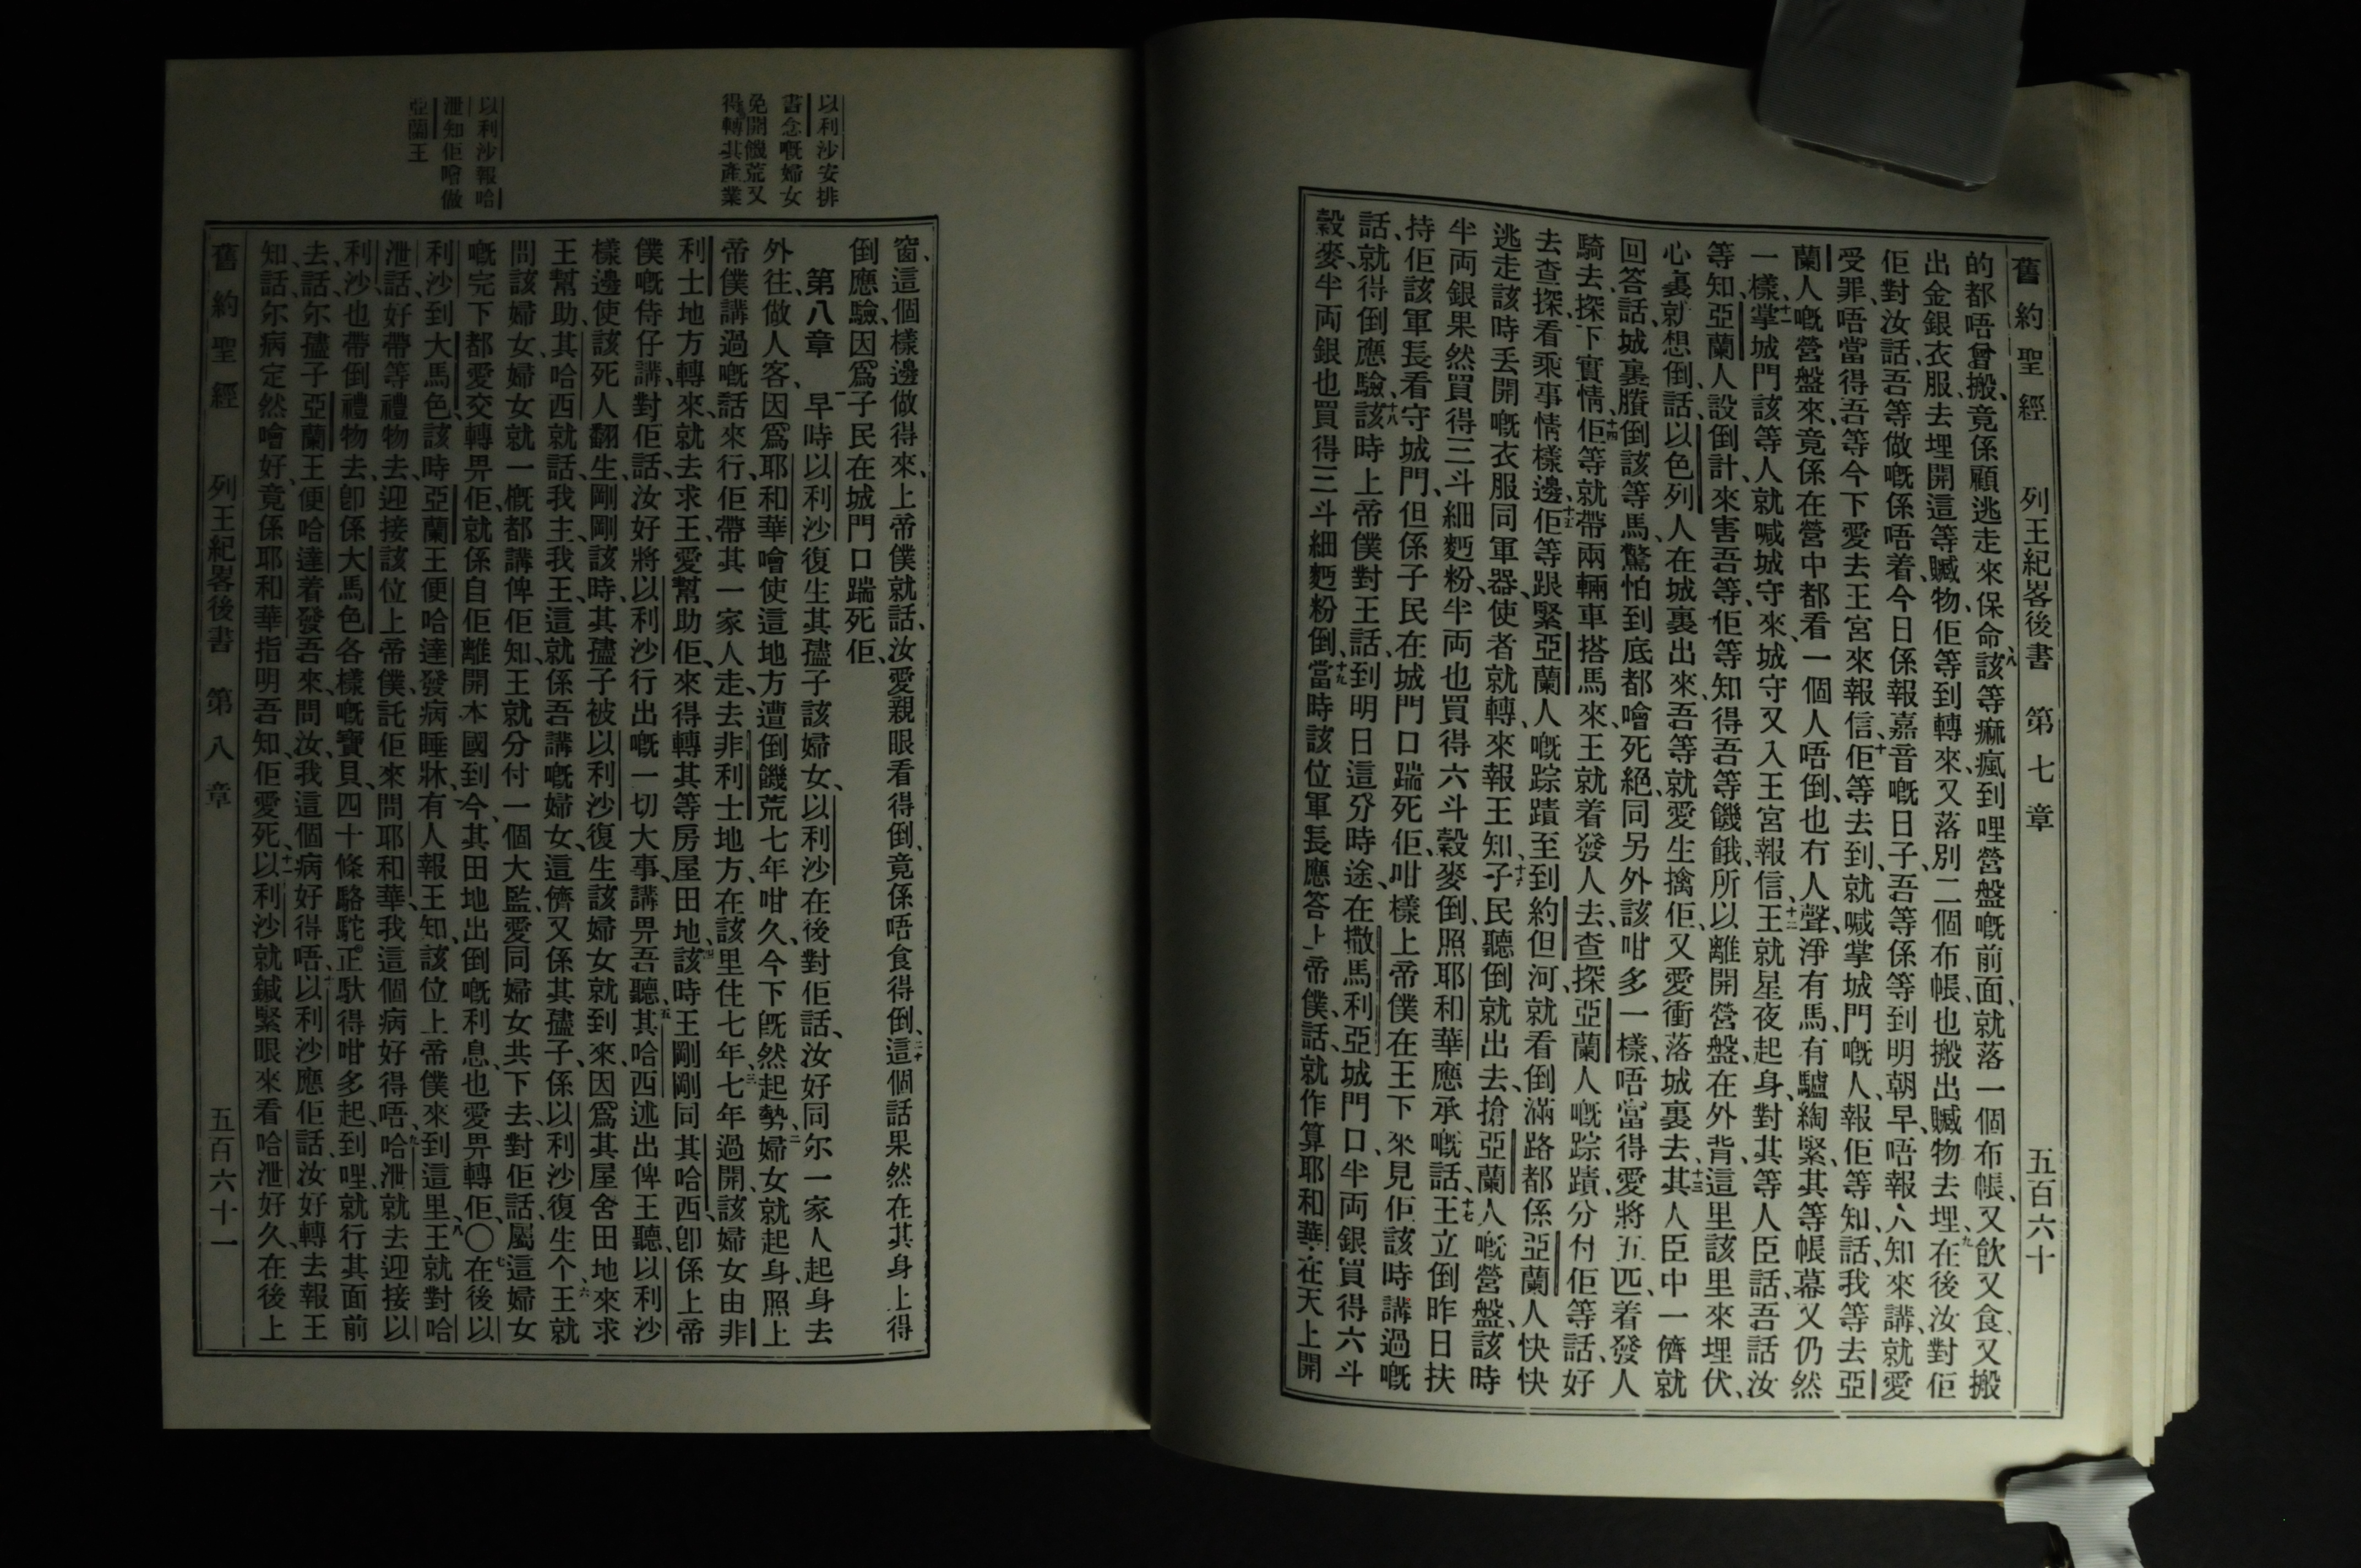 舊約聖經 列王紀畧後書 第七章 五百六十
的都唔曾搬、竟係顧逃走來保命、八該等痲瘋到哩營盤嘅前面、就落一個布帳、又飮又食、又搬
出金銀衣服去埋開這等贓物、佢等到轉來、又落別二個布帳、也搬出贓物去埋、九在後汝對佢
佢對汝話、吾等做嘅係唔着、今日係報嘉音嘅日子、吾等係等到明朝早、唔報人知來講、就愛
受罪、唔當得吾等今下愛去王宮來報信、十佢等去到、就喊掌城門嘅人、報佢等知、話、我等去亞
蘭人嘅營盤來、竟係在營中都看一個人唔倒、也冇人聲、淨有馬、有驢綯緊、其等帳幕又仍然
一樣、十一掌城門該等人就喊城守來、城守又入王宮報信、十二王就星夜起身、對其等人臣話、吾話汝
等知、亞蘭人設倒計、來害吾等、佢等知得吾等饑餓、所以離開營盤、在外背這里該里來埋伏、
心裏就想倒、話、以色列人在城裏出來、吾等就愛生擒佢、又愛衝落城裏去、十三其人臣中一儕就
回答話、城裏賸倒該等馬、驚怕到底都噲死絕、同另外該咁多一樣、唔當得愛將五匹、着發人
騎去、探下實情、十四佢等就帶兩輛車搭馬來、王就着發人去查探、亞蘭人嘅踪蹟、分付佢等話、好
去查探、看乘事情樣邊、十五佢等跟緊亞蘭人嘅踪蹟至到約但河、就看倒滿路都係亞蘭人快快
逃走該時丟開嘅衣服同軍器、使者就轉來報王知、十六子民聽倒就出去、搶亞蘭人嘅營盤、該時
半両銀果然買得三斗細麪粉、半両也買得六斗穀麥倒、照耶和華應承嘅話、十七王立倒昨日扶
持佢該軍長看守城門、但係子民在城門口踹死佢、咁樣上帝僕在王下來見佢該時講過嘅
話、就得倒應驗、十八該時上帝僕對王話、到明日這分時途、在撒馬利亞城門口、半両銀買得六斗
穀麥、半両銀也買得三斗細麪粉倒、十九當時該位軍長應答上帝僕、話、就作算耶和華在天上開
以利沙安排
書念嘅婦女
免開饑荒又
得轉其產業
以利沙報哈
泄知佢噲做
亞蘭王
窗、這個樣邊做得來、上帝僕就話、汝愛親眼看得倒、竟係唔食得倒、二十這個話果然在其身上得
倒應驗、因爲子民在城門口踹死佢、
第八章 一早時以利沙復生其孻子該婦女、以利沙在後對佢話、汝好同尔一家人起身去
外往、做人客、因爲耶和華噲使這地方遭倒饑荒七年咁久、今下旣然起勢、二婦女就起身、照上
帝僕講過嘅話來行、佢帶其一家人走去非利士地方、在該里住七年、三七年過開、該婦女由非
利士地方轉來、就去求王、愛幫助佢、來得轉其等房屋田地、四該時王剛剛同其哈西、卽係上帝
僕嘅侍仔講、對佢話、汝好將以利沙行出嘅一切大事、講畀吾聽、五其哈西述出俾王聽、以利沙
樣邊使該死人翻生、剛剛該時、其孻子被以利沙復生該婦女就到來、因爲其屋舍田地來求
王幫助、其哈西就話、我主、我王、這就係吾講嘅婦女、這儕又係其孻子、係以利沙復生个、六王就
問該婦女、婦女就一概都講俾佢知、王就分付一個大監、愛同婦女共下去、對佢話、屬這婦女
嘅完下都愛交轉畀佢、就係自佢離開本國到今、其田地出倒嘅利息、也愛畀轉佢、〇七在後以
利沙到大馬色、該時亞蘭王便哈達發病睡牀、有人報王知、該位上帝僕來到這里、八王就對哈
泄話、好帶等禮物去、迎接該位上帝僕、託佢來問耶和華、我這個病好得唔、九哈泄就去迎接以
利沙、也帶倒禮物去、卽係大馬色各樣嘅寶貝、四十條駱駝正馱得咁多、起到哩、就行其面前
去、話、尔孻子亞蘭王便哈達着發吾來、問汝、我這個病好得唔、十以利沙應佢話、汝好轉去報王
知、話、尔病定然噲好、竟係耶和華指明吾知、佢愛死、十一以利沙就鍼緊眼來看哈泄好久、在後上
舊約聖經 列王紀畧後書 第八章 五百六十一